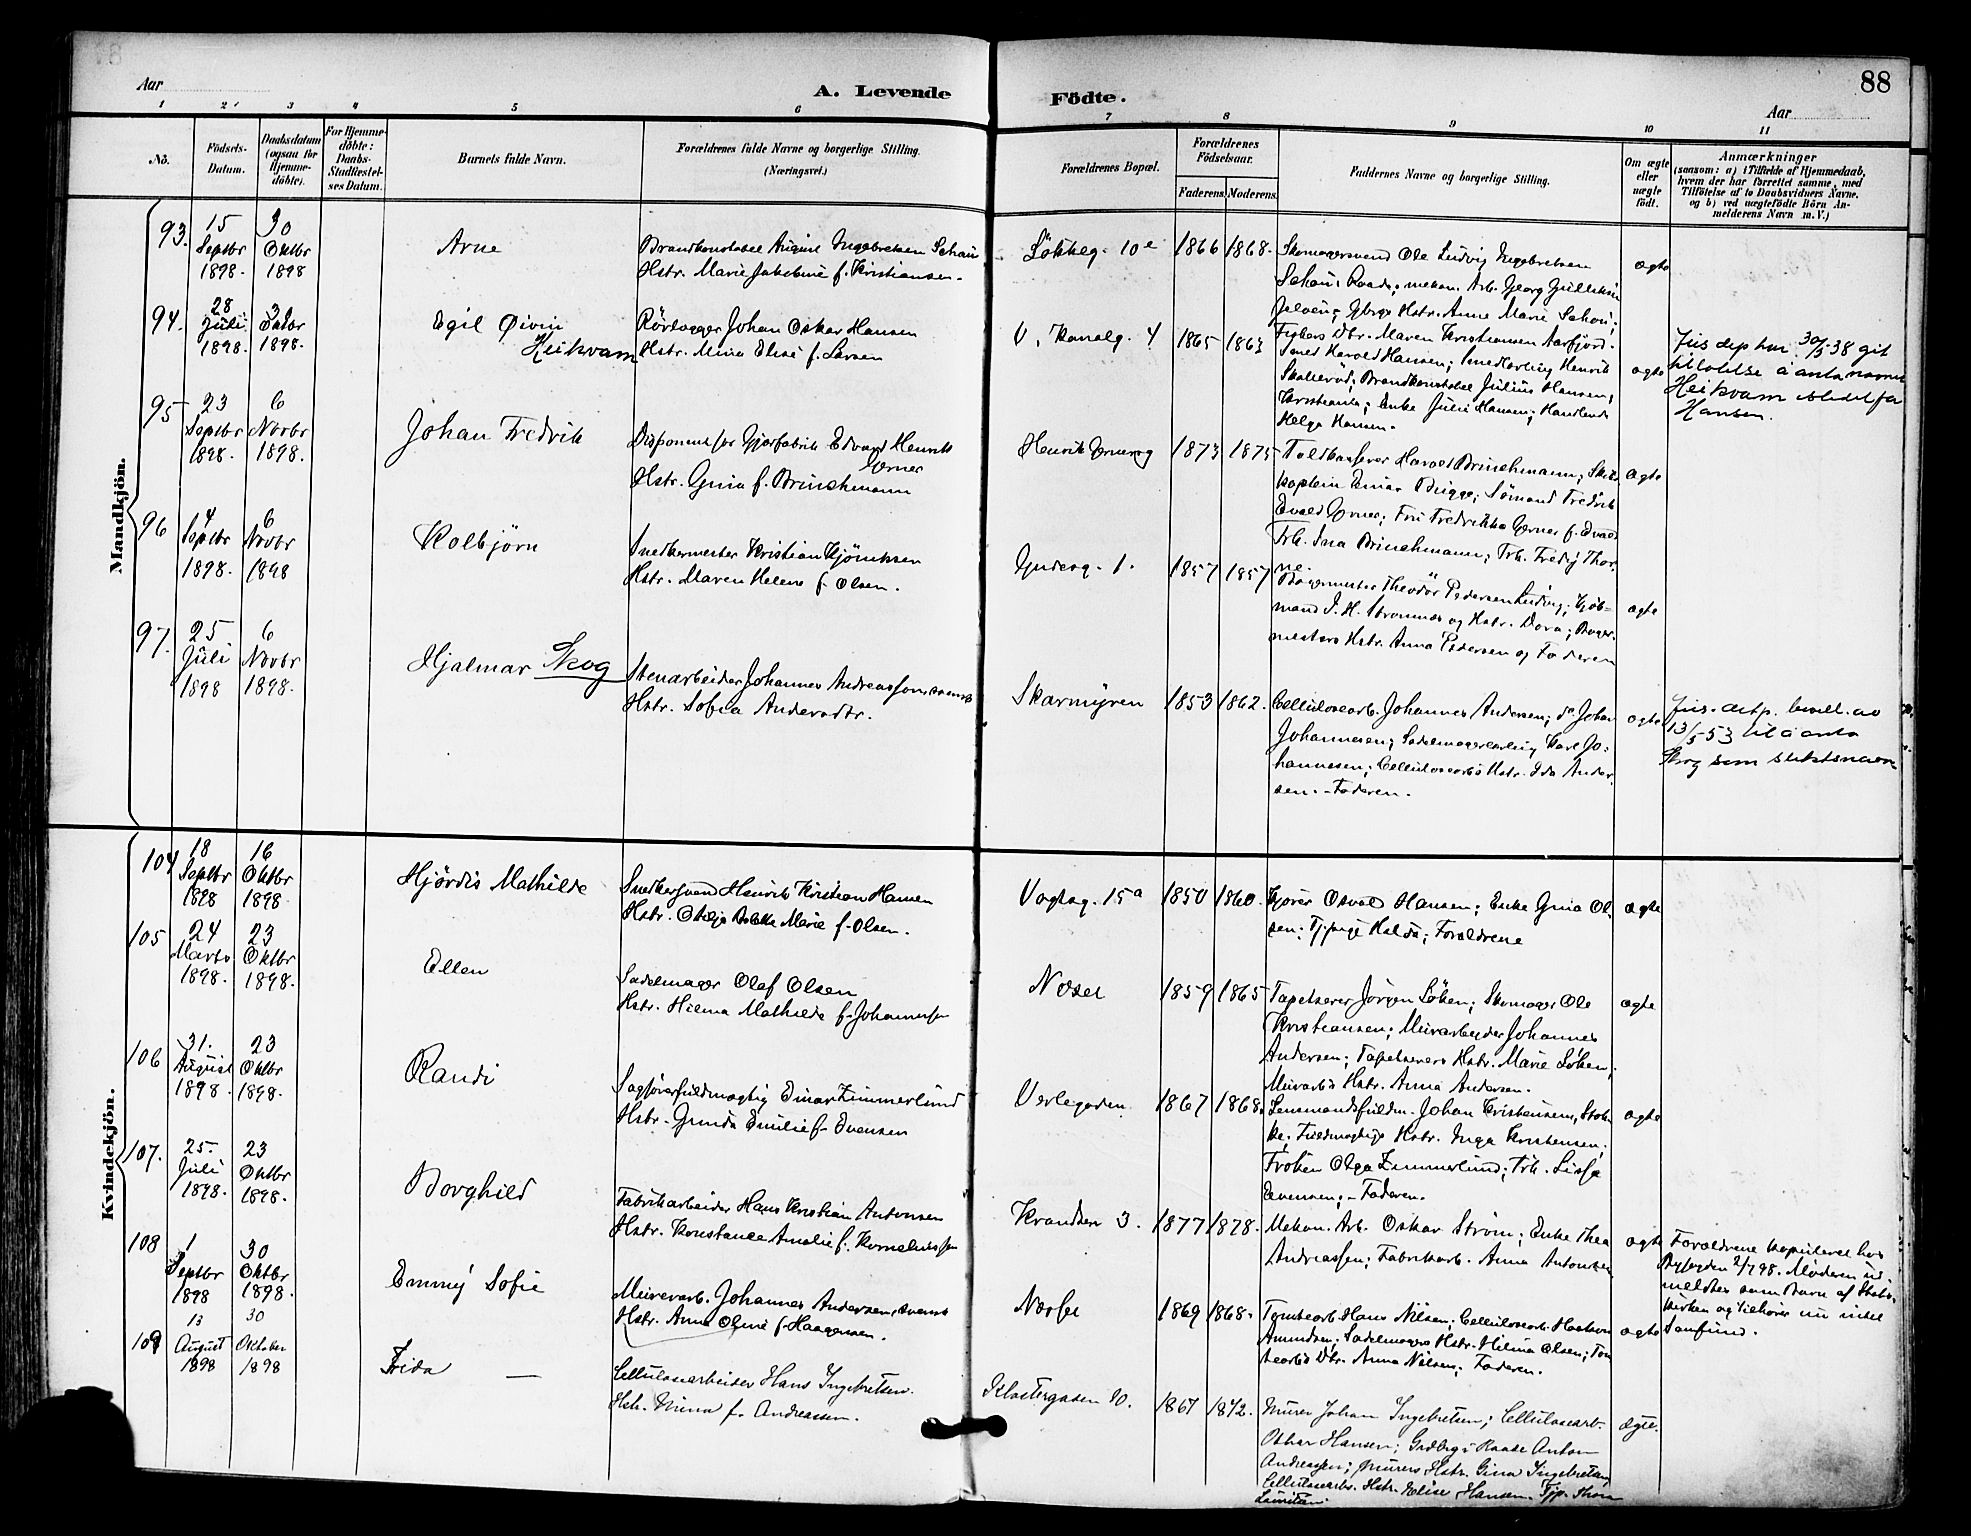 88
Aar
A. Levende
Födte.
Aar
1 2 3 4 5 6 7 8 9 10 11
No.
Födsels-
Datum.
Daabsdatum
(ogsaa for
Hjemme-
döbte).
For Hjemme-
döbte:
Daabs-
Stadfæstel-
ses Datum.
Barnets fulde Navn.
Forældrenes fulde Navne og borgerlige Stilling.
(Næringsvei.)
Forældrenes Bopæl.
Forældrenes
Födselsaar.
Faderens. Moderens.
Faddernes Navne og borgerlige Stilling.
Om ægte
eller
uægte
födt.
Anmærkninger
(saasom: a) i Tilfælde af Hjemmedaab,
hvem der har forrettet samme, med
Tilföielse af to Daabsvidners Navne,
og b) ved uægtefödte Börn An-
melderens Navn m. V.)
Mandkjön.
93.
15
Septbr
1898
30
Oktbr
1898
Arne
Brandkonstabel August Ingebretsen Schau
Hstr. Marie Jakobine f. Kristiansen.
Løkkeg. 10e
1866 1868.
Skomagersvend Ole Ludvig Ingebretsen
Schou, Raade; mekan. Arb. Georg Gulliksen
Hstr. Anne Marie Schou;
Dtr. Maren Kristiansen
ægte
94.
28
Juli
1898.
30
Oktbr
1898.
Egil Øivin
Heikvam
Rörlægger Johan Oskar Hansen
Hstr. Mina Elise f. Larsen
V. Kanalg. 4
1865 1863
Smed Harald Hansen; Smedlærling Henrik
Skallerud; Brandkonstabel Julius Hansen,
Kristiania; Enke Julie Hansen; Handlende
Helga Hansen.
ægte
Jus dep har 30/5 38 git
tillatelse å anta navnet
Heikvam istedetfor
Hansen.
95
23
Septbr
1898.
6
Novbr
1898.
Johan Fredrik
Disponent for Gjærfabrik Edvard Henrik
Gerner
Hstr. Gina f. Brinchmann
Henrik Gernersg
1873 1875
Toldkasserer Harald Brinchmann; Skibs
kaptein Einar Brigge; Sömand Fredrik
Evald Gerner; Fru Fredrikke Gerner f. Evald
Frk. Ina Brinchmann; Frk. Fredy Thor-
ne.
ægte
96
4
Septbr
1898.
6
Novbr
1898
Kolbjörn
Snedkermester Kristian
Hstr. Maren Helene f. Olsen.
Gudesg. 1.
1857 1857
Bagermester Theodor Pedersen Ludvig; Kjöb-
mand J. H. Stromnes og Hstr. Dora; Bager-
mesters Hstr. Anna Pedersen og Faderen
ægte
97.
25
Juli
1898
6
Novbr
1898.
Hjalmar Skog
Stenarbeider Johannes Andreassen svensk
Hstr. Sofia Andersdtr.
Skarmyren
1853 1862.
Cellulosearb. Johannes Andersen; do Johan
Johannesen; Sadelmagerlærling Karl Jo-
hannesen; Cellulosearbs Hstr. Ida Ander-
sen. - Faderen.
ægte
Jus. dep. bevill. av
13/5-53 til å anta
Skog som slektsnavn
Kvindekjön.
104
18
Septbr
1898
16
Oktbr
1898.
Hjördis Mathilde
Snedkersvend Henrik Kristian Hansen
Hstr. Otilje Marie f. Olsen.
Vogtsg. 15a
1850 1860.
Kjører Osvald Hansen; Enke Gina Ol-
sen; Tj.pige Hulda; Forældrene
ægte
105
24
Marts
1898.
23
Oktbr
1898.
Ellen
Sadelmager Olaf Olsen
Hstr. Hilma Mathilde f. Johannessen
Noset
1859 1865
Tapetserer Jörgen Löken; Skomager Ole
Kristiansen; Murarbeider Johannes
Andersen; Tapetserers Hstr. Marie Löken;
Murarbs Hstr. Anna Andersen.
ægte
106
31.
August
1898.
23
Oktbr
1898.
Randi
Sagförerfuldmægtig Einar Zimmerlund
Hstr. Gunda Emilie f. Evensen
Værlegaden.
1867 1868.
Lensmandsfuldm. Johan Kristensen, Stok-
ke; Fuldmægtigs Hstr. Inga Kristensen;
Fröken Olga Zimmerlund; Frk. Lissa
Evensen; - Faderen.
ægte
107.
25.
Juli
1898.
23
Oktbr
1898.
Borghild
Fabrikarbeider Hans Kristian Antonsen
Hstr. Konstance Amalie f. Korneliussen
Krandsen 3.
1877 1878.
Mekan. Arb. Oskar Ström; Enke Thea
Andreassen; Fabrikarb. Anna Antonsen
ægte
Forældrene kopuleret hos
Byfogden 2/7 98. Moderen ud-
meldtes som Barn af Stats-
kirken og tilhører nu intet
Samfund.
108
1
Septbr
1898
30
Oktbr
1898.
Emmy Sofie
Murerarb. Johannes Andersen, svensk
Hstr. Anna Oline f. Haagensen.
Noset
1869 1868.
Tomtearb. Hans Nilsen; Cellulosearb. Haakon
Amundsen; Sadelmagers Hstr. Hilma Olsen; Tom-
tearbs Dtr. Anna Nilsen; Faderen.
ægte
109
13
August
1898
30
Oktober
1898
Frida —
Cellulosearbeider Hans Ingebretsen.
Hstr. Mina f. Andreassen.
Klostergaden 10.
1867 1872.
Murer Johan Ingebretsen; Cellulosearb.
Oskar Hansen; Gaardbrg i Raade Anton
Andreassen; Murers Hstr. Gina Ingebretsen;
Cellulosearbs. Hstr. Elise Hansen. Tjp. Thora
Lauritsen.
ægte.